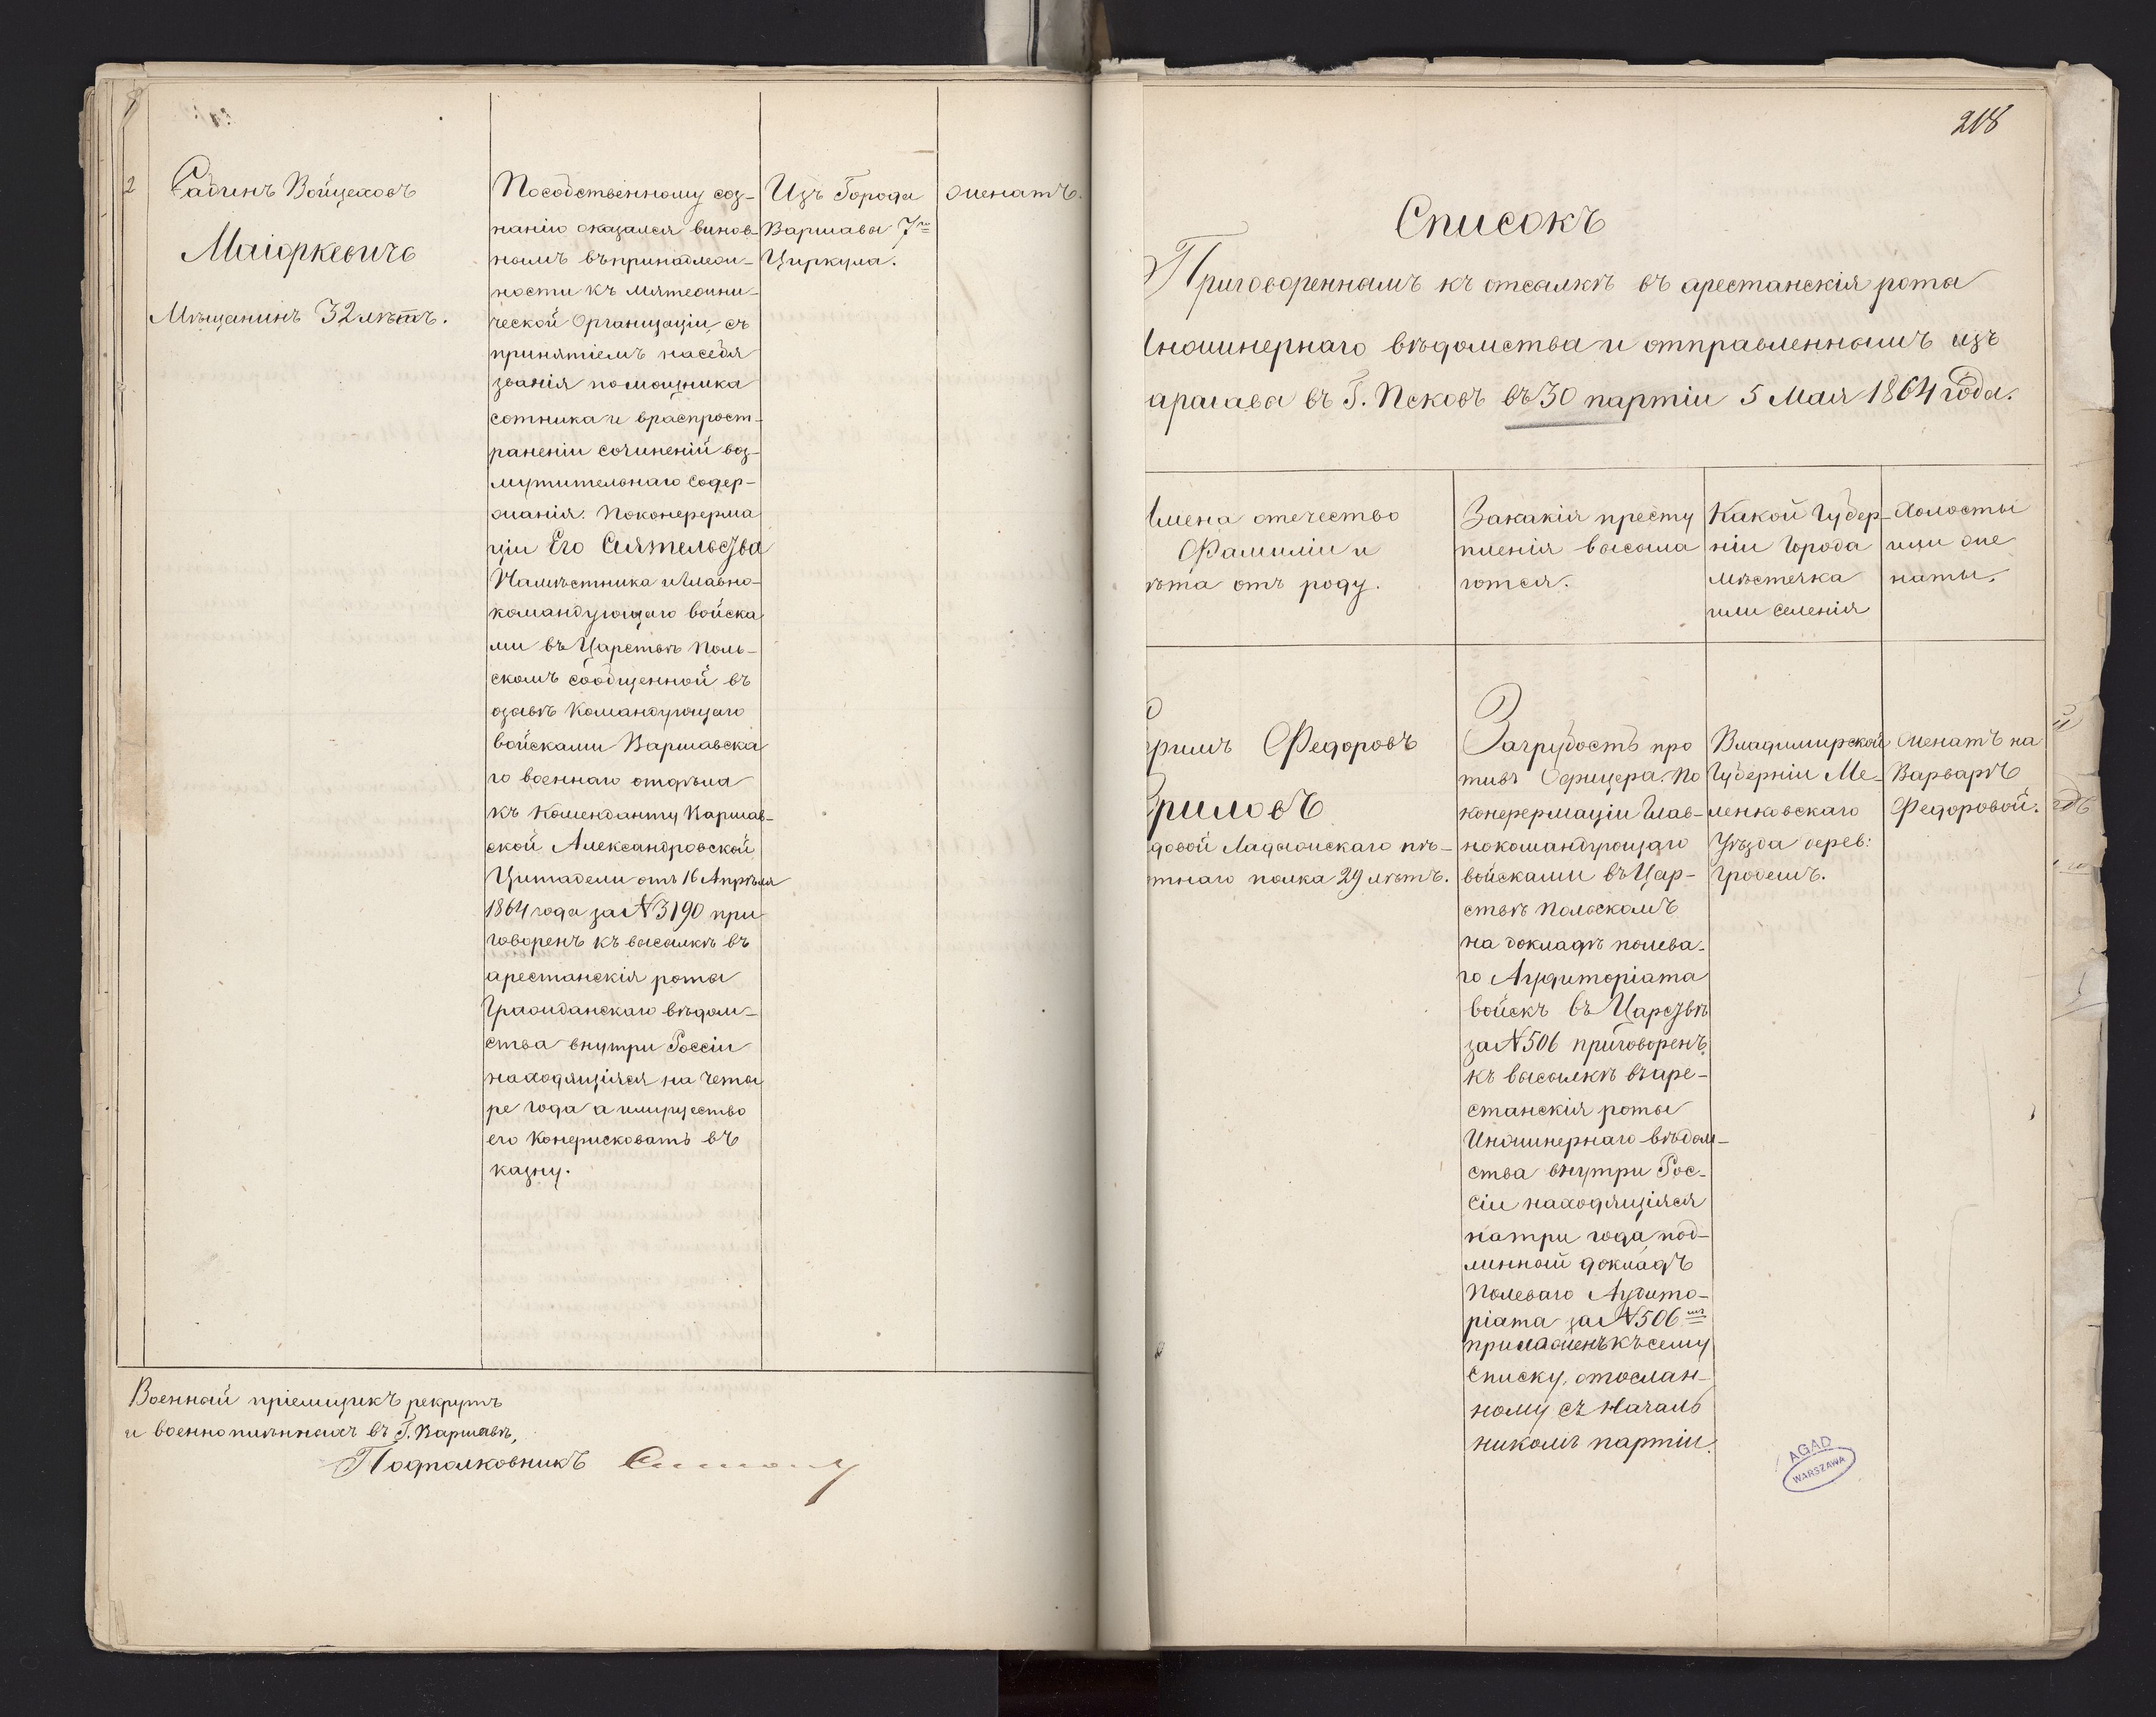 2
Сабинъ Войцеховъ
Маіоркевичъ
Мѣщанинъ 32 лѣтъ.
Пособственному соз-
нанію оказался винов-
нымъ въ принадлеж-
ности къ мятежни-
ческой Организаціи, съ
принятіемъ на себя
званія помощника
сотника и враспрост-
раненіи сочиненій воз-
мутительнаго содер-
жанія. Поконферма
ціи Его Сіятельства
Намѣстника и Главно-
командующаго войска
ми въ Царствѣ Поль-
скомъ сообщенной въ
озывѣ Командующаго
войсками Варшавска
го военнаго отдѣла
къ Коменданту Варшав-
ской Александровской
Цитадели отъ 16 Апрѣля
1864 года за №3190 при
говоренъ къ высылкѣ въ
арестанскія роты
Гражданскаго вѣдом-
ства внутри Россіи
находящіяся на четы
ре года а имущество
его конфисковать въ
казну.
Изъ Города
Варшавы 7го
Циркула.
женатъ.
Военный пріемщикъ рекрутъ
и военноплѣнныхъ въ Г. Варшавѣ,
Подполковникъ
218
Списокъ
Приговореннымъ къ отсылкѣ въ арестанскія роты
Инжинернаго вѣдомства и отправленнымъ изъ
аршавы въ Г. Псковъ въ 30 партіи 5 Мая 1864 года.
Имена отечество
Фамиліи и
ѣта отъ роду.
Закакія престу
пленія высыла
ются.
Какой Губер-
ніи города
мѣстечка
или селенія
Холосты
или же
наты.
Федоровъ
риловъ
довой Ладожскаго пѣ-
тнаго полка 29 лѣтъ.
Загрубость про
тивъ Офицера. По
конфермаціи Глав-
нокомандующаго
войсками въ Цар-
ствѣ Польскомъ
на докладѣ полева-
го Аудиторіата
войскъ въ Царствѣ
за №506 приговоренъ
къ высылкѣ въ аре-
станскія роты
Инжинернаго вѣдом-
ства внутри Рос-
сіи находящіяся
на три года, под-
линный докладъ
Полеваго Аудито-
ріата за №506мъ
приложенъ къ сему
списку, отослан-
ному съ Началь
никомъ партіи.
Владимирской
Губерніи Ме-
ленковскаго
Уѣзда дерев:
Женатъ на
Варварѣ
Федоровой.
AGAD
WARSZAWA